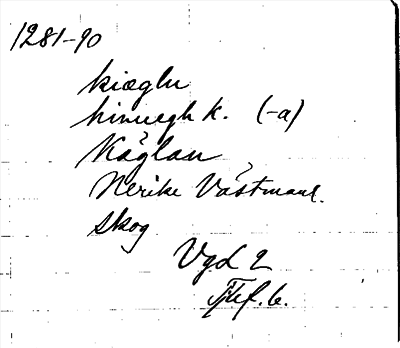 1281-90
kiæglu
hinnegh k. (-a)
Käglan
Nerike Västmanl.
skog
Vgd 2